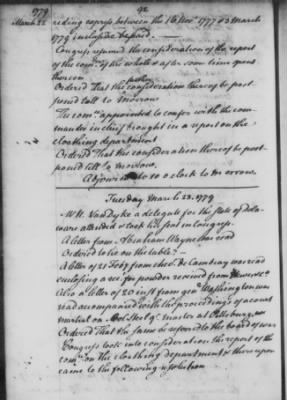 1779
92
March 22
riding express between the 16 Nov. 1777 & 3 March
1779 inclusive be paid.
Congress resumed the consideration of the report
of the comee. of the whole & after some time spent
thereon
farther
Ordered That the consideration thereof be post
poned till to morrow
The comee. appointed to confer with the com
mander in chief brought in a report on the
cloathing department
Ordered That the consideration thereof be post
poned till to morrow.
Adjourned to 10 o Clock to morrow.
Tuesday March 23. 1779
Mr. N. Van Dyke a delegate for the state of Dela
ware attended & took his seat in Congress.
A letter from Abraham Wayne was read
Ordered to lie on the table.
A letter of 21 Feby from col. De Cambray was read
enclosing a rect. for powder received from
Also a letter of 20 inst from genl Washington was
read accompanied with the proceedings of a court
martial on Col. Steel qr. master at Pittsburg, on
Ordered That the same be referred to the board of war
Congress took into consideration the report of the
comee. on the cloathing department & thereupon
came to the following resolution